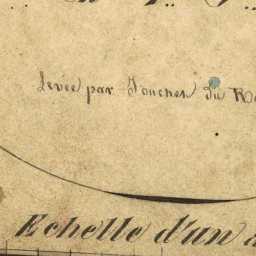 Levée par Fouchet du
Echelle d'un